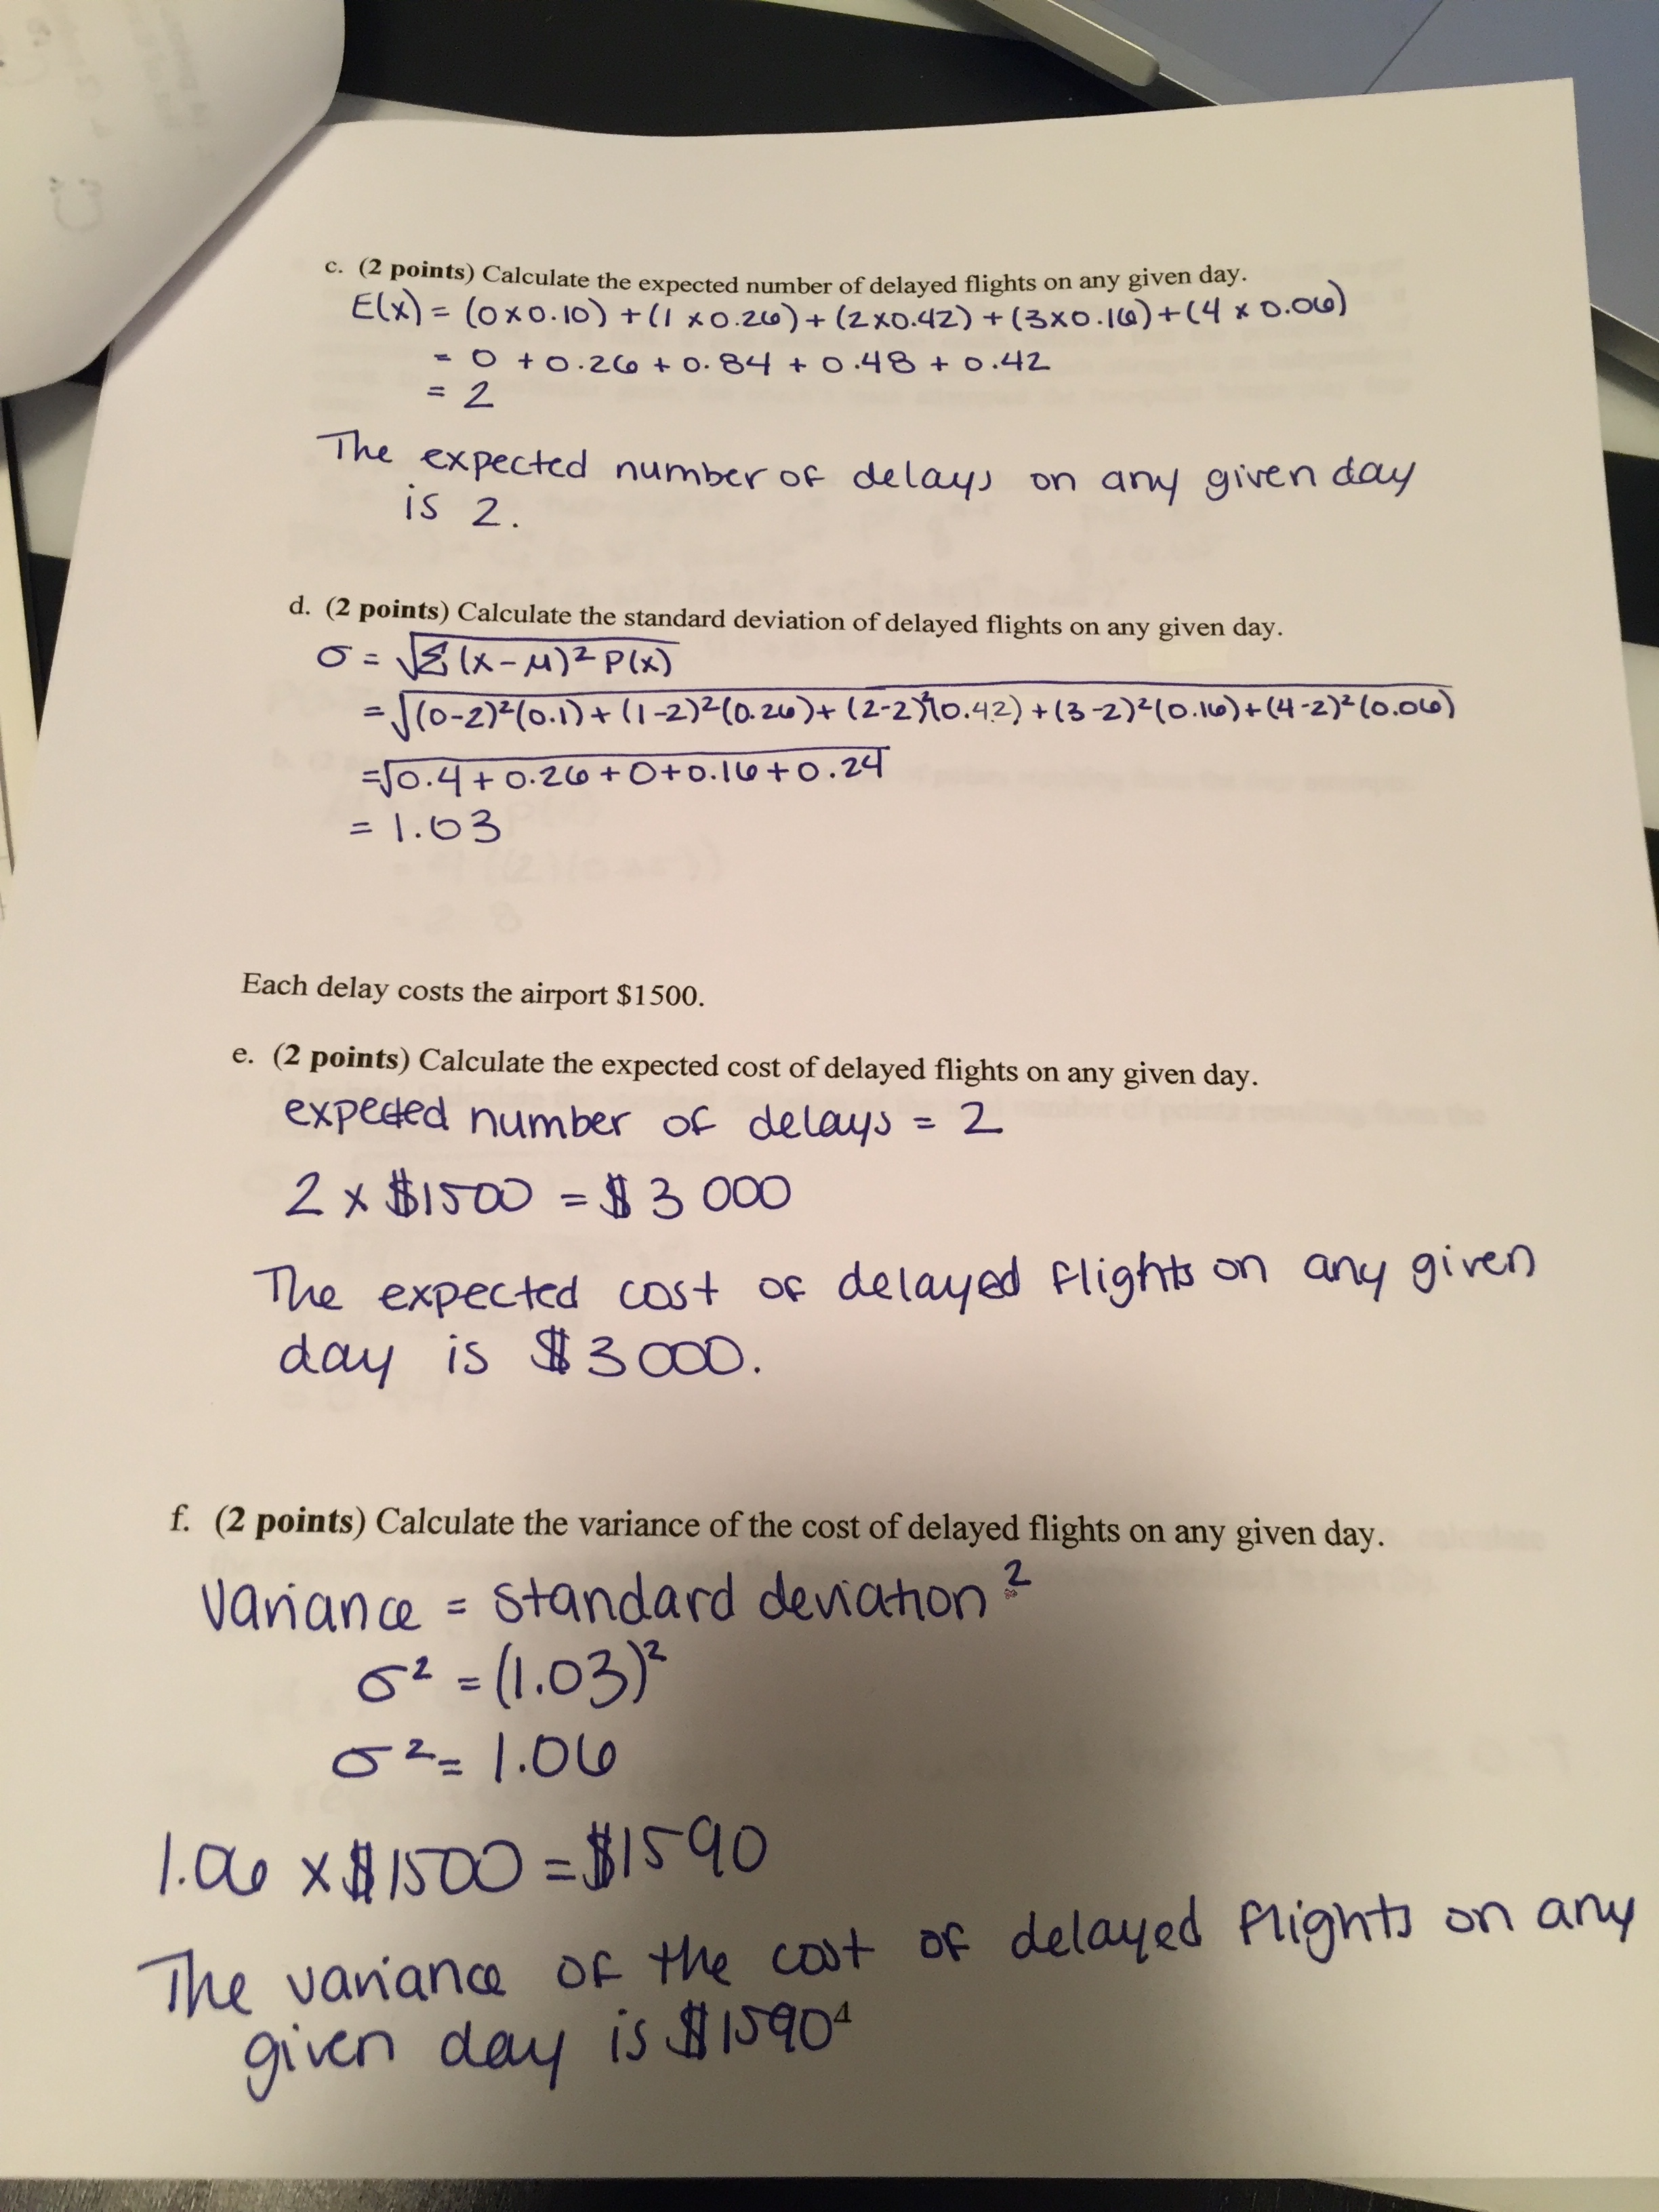 c. (2 points) Calculate the expected number of delayed flights on any given day.
E(x) = (0 x 0.10) + (1 x 0.26) + (2 x 0.42) + (3 x 0.16) + (4 x 0.06)
= 0 + 0.26 + 0.84 + 0.48 + 0.42
= 2
The expected number of delays on any given day
is 2.
d. (2 points) Calculate the standard deviation of delayed flights on any given day.
σ = √Σ(x-μ)² P(x)
= √(0-2)²(0.1) + (1-2)²(0.26) + (2-2)²(0.42) + (3-2)²(0.16) + (4-2)²(0.06)
= √0.4 + 0.26 + 0 + 0.16 + 0.24
= 1.03
Each delay costs the airport $1500.
e. (2 points) Calculate the expected cost of delayed flights on any given day.
expected number of delays = 2
2 x $1500 = $3 000
The expected cost of delayed flights on any given
day is $3000.
f. (2 points) Calculate the variance of the cost of delayed flights on any given day.
Variance = standard deviation²
σ² = (1.03)²
σ² = 1.06
1.06 x $1500 = $1590
The variance of the cost of delayed flights on any
given day is $1590
4